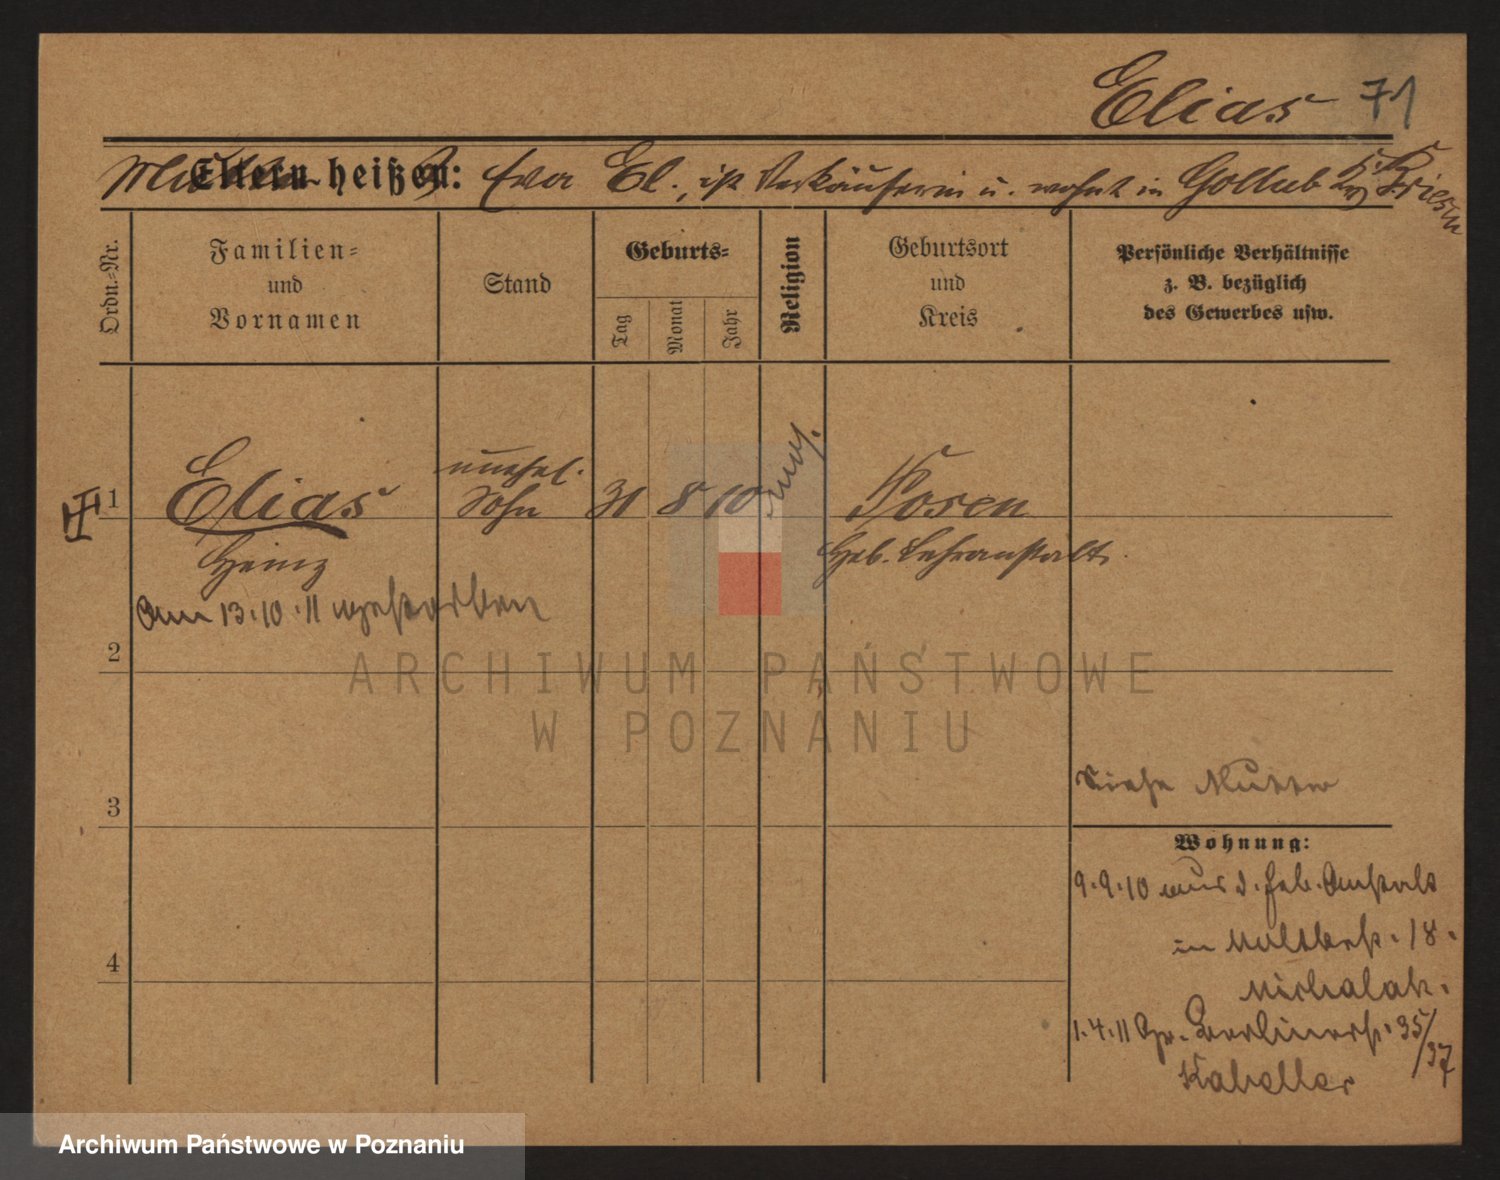 Elias 71
Eltern heißen:
Mutter Eva El., ist Verkäuferin u. wohnt in Gollub Kr. Briesen
Ordn.-Nr.
Familien-
und
Vornamen
Stand
Geburts-
Tag
Monat
Jahr
Religion
Geburtsort
und
Kreis
Persönliche Verhältnisse
z. B. bezüglich
des Gewerbes usw.
unehel.
1 Elias Sohn 31 8 10 Posen
Heinz Heb. Lehranstalt.
Am 13.10.11 gestorben
2
ARCHIWUM PAŃSTWOWE
W POZNANIU
3
Siehe Mutter
Wohnung:
9.9.10 aus d. Heb. Anstalt
in 18.
Michalak.
4
1.4.11 Gr. Berlinerst. 35/37
Archiwum Państwowe w Poznaniu